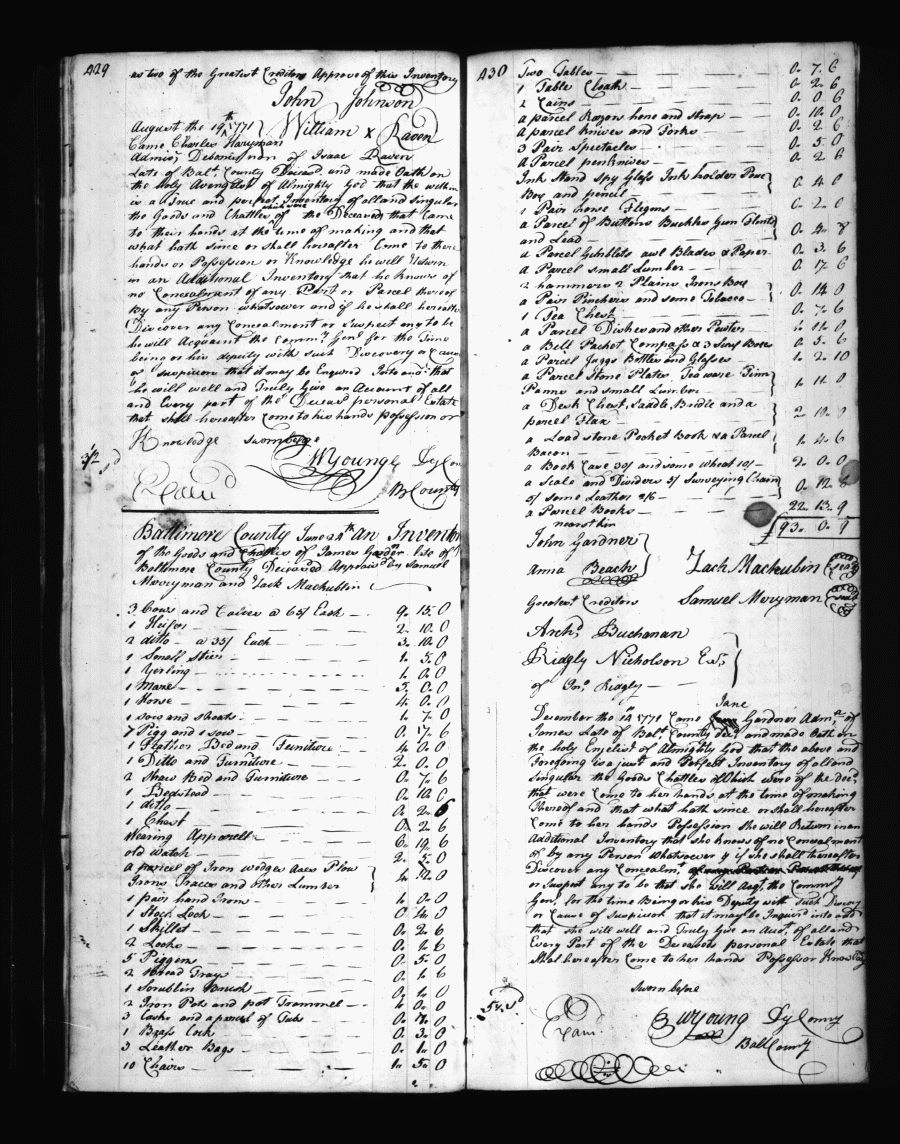 429
as two of the Greatest Creditors Approve of this Inventory
John Johnson
William x Raven
August the 19th 1771
Came Charles Haryman
Admin; Debonis non of Isaac Raven
Late of Balt. County Deceasd. and made Oath on
the holy Avengelest of Almighty God that the within
is a True and perfect Inventory of all and Singular
the Goods and Chattles which were of the Deceased that Came
to their hands at the time of making and that
what hath since or shall hereafter Come to there
hands or Possession or Knowledge he will Return
in an Additional Inventory that he knows of
no Concealment of any Part or Parcel thereof
by any Person whatsoever and if he shall hereafter
Discover any Concealment or Suspect any to be
he will Acquaint the Commy. Genl. for the Time
being or his deputy with such Discovery or Cause
of suspicion that it may be Enquired Into and that
he will well and Truly Give an Account of all
and Every part of the Deceasd. personal Estate
that shall hereafter Come to his hands Possession or
Knowledge sworn before
WYoung Dy Com
B. County
Examd
Baltimore County June 24th An Invento
of the Goods and Chattles of James Gardner late of
Baltimore County Deceased Appraisd by Samuel
Merryman and Zack Mackubin
3 Cows and Calves a 65/ Each 9. 15. 0
1 Heifer 2. 10. 0
2 ditto a 35/ Each 3. 10. 0
1 Small Steer 1. 5. 0
1 Yerling 1. 0. 0
1 Mare 5. 0. 0
1 Horse 4. 0. 0
1 sow and shoats 1. 7. 0
7 Pigg and 1 sow 0. 17. 6
1 Feather Bed and Funiture 4. 0. 0
1 Ditto and Furniture 2. 0. 0
2 Straw Bed and Furniture 0. 7. 6
1 Bedstead 0. 10. 0
1 ditto 0. 2. 6
1 Chest 0. 2. 6
Wearing Apparell 6. 19. 6
old watch 2. 5. 0
a parcel of Iron wedges Axes Plow
Irons Traces and other Lumber 1. 12. 0
1 pair hand Irons 1. 0. 0
1 Stock Lock 0. 4. 0
1 Skyllet 0. 2. 6
2 Locks 0. 1. 6
5 Piggens 0. 5. 0
2 Bread Trays 0. 1. 6
1 Scrublin Brush 0. 1. 0
2 Iron Pots and pot Trammel 1. 0. 0
3 Casks and a parcel of Tubs 0. 7. 0
1 Brass Cock 0. 3. 0
3 Leather Bags 0. 1. 0
10 Chairs 1. 5. 0
430
Two Tables 0. 7. 6
1 Table Cloath 0. 2. 6
2 Cains 0. 0. 6
a parcel Razors hone and Strap 0. 10. 0
a parcel knives and Forks 0. 2. 6
3 Pair Spectacles 0. 5. 0
a Parcel penknives 0. 2. 6
Ink Stand Spy Glass Ink holder
Box and pencil 0. 4. 0
1 Pair horse Flegms 0. 2. 0
a Parcel of Buttons Buckles Gun Flints
and Lead 0. 5. 8
a Parcel Gimblets awl Blades & Paper 0. 3. 6
a Parcel small Lumber 0. 17. 6
2 hammers 2 Plains Irons Box
a Pair Pinchers and some Tobacco 0. 14. 0
1 Tea Chest 0. 7. 6
a Parcel Dishes and other Pewter 1. 11. 0
a Bell Pocket Compass & 3 Boxes 0. 5. 6
a Parcel Juggs Bottles and Glasses 1. 2. 10
a Parcel Stone Plates Tea ware Tinn
Panns and small Lumber 1. 11. 0
a Desk Chest, Saddle, Bridle and a
parcel Flax 2. 10. 0
a Load stone Pocket Book & a Parcel
Bacon 1. 4. 6
a Book Case 30/ and some wheat 10/ 2. 0. 0
a Scale and Dividers 5/ Surveying Chain
5/ some Leather 2/6 0. 12. 8
a Parcel Books 22. 13. 9
93. 0. 9
nearst kin
John Gardner
Anna Beach
Zach Mackubin (seal)
Greatest Creditors
Samuel Meryman (seal)
Archd. Buchanan
Ridgly Nicholson Exr.
of Jno. Ridgly
Jane
December the 14 1771 Came Gardner Adm. of
James Late of Balt County decd and made Oath on
the holy Envelist of Almighty God that the above and
Foregoing is a just and Perfect Inventory of all and
Singular the Goods Chattles Which were of the decd.
that were Come to her hands at the time of making
Thereof and that what hath since or shall hereafter
Come to her hands Possession She will Return in an
Additional Inventory that she knows of no Concealment
of by any Person Whatsoever & if she shall thereafter
Discover any Concealmt.
or Suspect any to be that she will Acqt. the Commry
Gen. for the time Being or his Deputy with Such Discovry
or Cause of Suspicion that it may be Inquird into and
that she will well and Truly Give an Acct. of all and
Every Part of the Deceaseds personal Estate that
Shal hereafter Come to her hands Possession Knowledg
Sworn before
WYoung Dy Comry
Balt County
Exam.